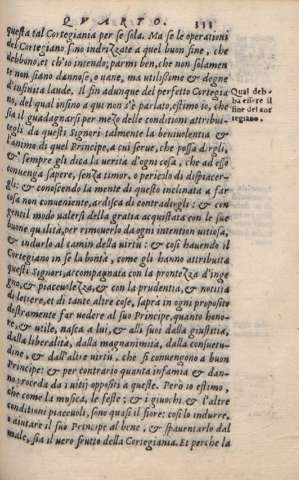 QVARTO. 333
questa tal Cortegiania per se sola. Ma se le operationi
del Cortegiano sono indrizzate a quel buon fine, che
debbono, et ch'io intendo; parmi ben, che non solamen
te non siano dannose, o uane, ma utilissime & degne
d'infinita laude. Il fin adunque del perfetto Cortegia
no, del qual insino a qui non s'è parlato, estimo io, che
sia il guadagnarsi per mezo delle conditioni attribui-
tegli da questi Signori talmente la beniuolentia &
l'animo di quel Principe, a cui serue, che possa dirgli,
& sempre gli dica la uerità d'ogni cosa, che ad esso
conuenga sapere, senza timor, o pericolo di dispiacer-
gli: & conoscendo la mente di questo inclinata a far
cosa non conueniente, ardisca di contradirgli: & con
gentil modo ualersi della gratia acquistata con le sue
buone qualità, per rimouerlo da ogni intention uitiosa,
& indurlo al camin della uirtù: & così hauendo il
Cortegiano in se la bontà, come gli hanno attribuita
questi Signori, accompagnata con la prontezza d'inge
gno, & piaceuolezza, & con la prudentia, & notitia
di lettere, et di tante altre cose, saprà in ogni proposito
destramente far uedere al suo Principe, quanto hono-
re, & utile, nasca a lui, & alli suoi dalla giustitia,
dalla liberalità, dalla magnanimità, dalla mansuetu-
dine, & dall'altre uirtù, che si conuengono a buon
Principe: & per contrario quanta infamia & dan-
no proceda da i uitij oppositi a queste. Però io estimo,
che come la musica, le feste; & i giuochi & l'altre
conditioni piaceuoli, sono quasi il fiore: così lo indurre,
o aiutare il suo Principe al bene, & spauentarlo dal
male, sia il uero frutto della Cortegiania. Et perche la
Qual deb-
ba essere il
fine del cor
tegiano.